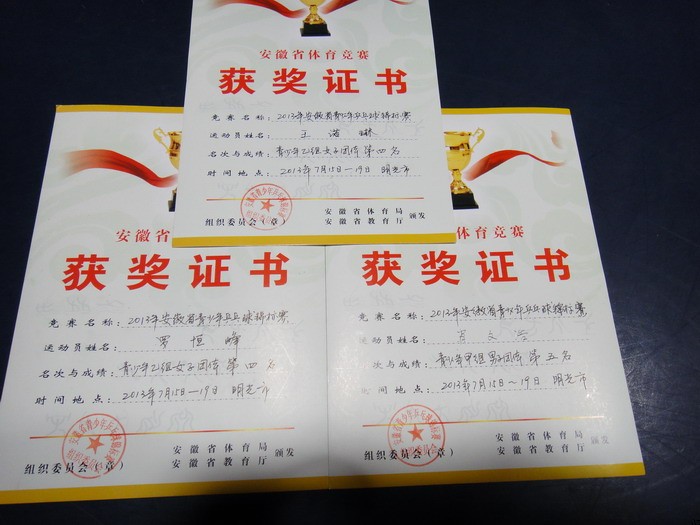 安徽省体育竞赛
获奖证书
竞赛名称：2013年安徽省青少年乒乓球锦标赛
运动员姓名：王 诺 琳
名次与成绩：青少年乙组女子团体 第四名
时间地点：2013年7月15日—19日 明光市
组织委员会（章）
安徽省体育局
安徽省教育厅
颁发
安徽省
获奖证书
竞赛名称：2013年安徽省青少年乒乓球锦标赛
运动员姓名：罗 恒 峰
名次与成绩：青少年乙组女子团体 第四名
时间地点：2013年7月15日—19日 明光市
组织委员会（章）
安徽省体育局
安徽省教育厅
颁发
体育竞赛
获奖证书
竞赛名称：2013年安徽省青少年乒乓球锦标赛
运动员姓名：
名次与成绩：青少年甲组男子团体 第五名
时间地点：2013年7月15日～19日 明光市
组织委员会（章）
安徽省体育局
安徽省教育厅
颁发